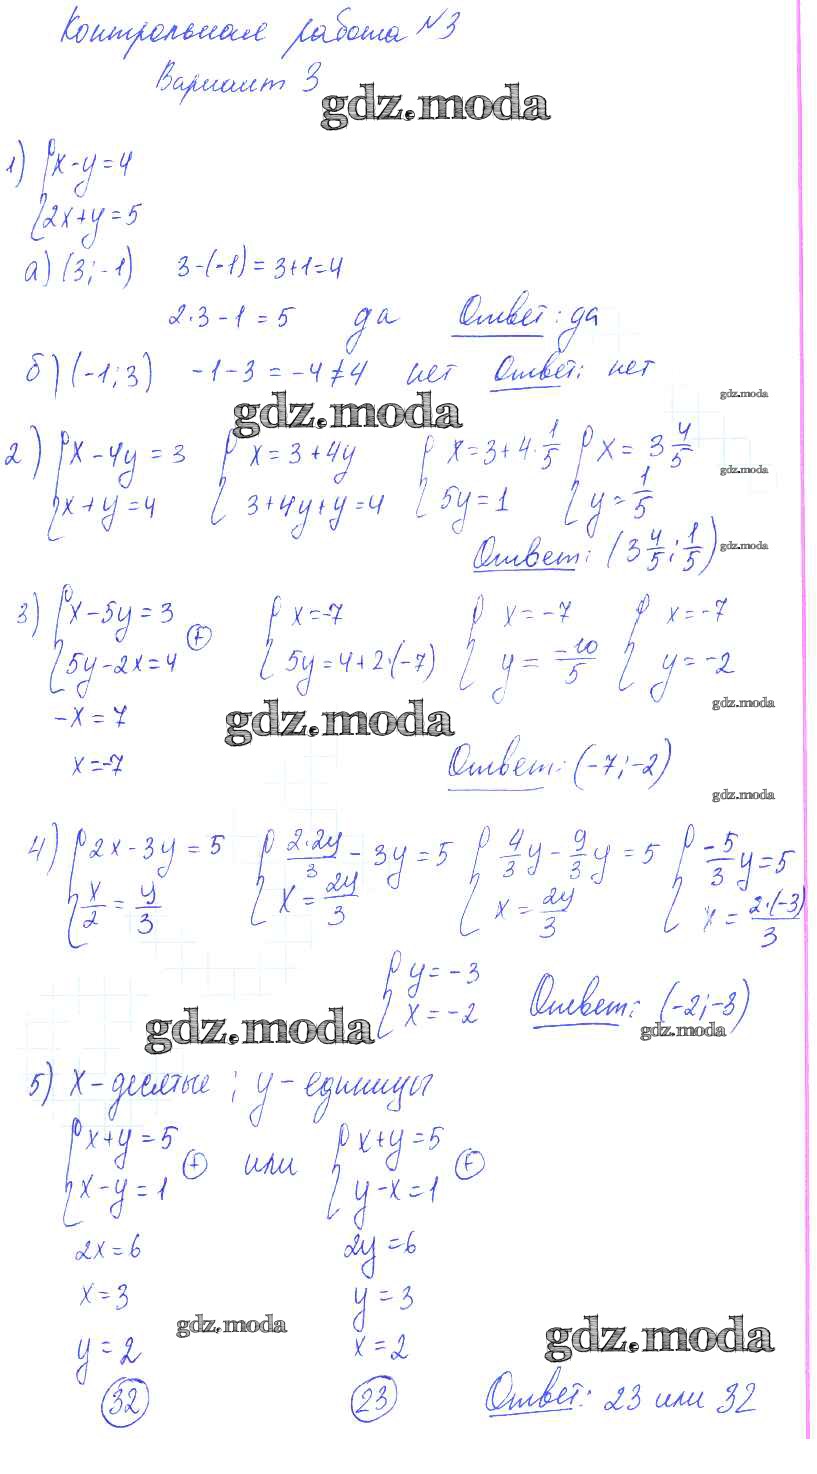 Контрольная работа №3
Вариант 3
gdz.moda
1) { x - y = 4
{ 2x + y = 5
а) (3; -1)  3 - (-1) = 3 + 1 = 4
2·3 - 1 = 5  да  Ответ: да
б) (-1; 3)  -1 - 3 = -4 ≠ 4  нет  Ответ: нет
gdz.moda
gdz.moda
2) { x - 4y = 3  { x = 3 + 4y  { x = 3 + 4·1/5  { x = 3 4/5
{ x + y = 4  { 3 + 4y + y = 4  { 5y = 1  { y = 1/5
gdz.moda
Ответ: (3 4/5; 1/5)
gdz.moda
3) { x - 5y = 3  { x = -7  { x = -7  { x = -7
{ 5y - 2x = 4 (+)  { 5y = 4 + 2·(-7)  { y = -10/5  { y = -2
-x = 7
gdz.moda
gdz.moda
x = -7  Ответ: (-7; -2)
gdz.moda
4) { 2x - 3y = 5  { 2·2y/3 - 3y = 5  { 4/3 y - 9/3 y = 5  { -5/3 y = 5
{ x/2 = y/3  { x = 2y/3  { x = 2y/3  { x = 2·(-3)/3
{ y = -3
{ x = -2  Ответ: (-2; -3)
gdz.moda
gdz.moda
5) x - десятые ; y - единицы
{ x + y = 5  или  { x + y = 5
{ x - y = 1 (+)  { y - x = 1 (+)
2x = 6  2y = 6
x = 3  y = 3
gdz.moda
gdz.moda
y = 2  x = 2
32  23  Ответ: 23 или 32